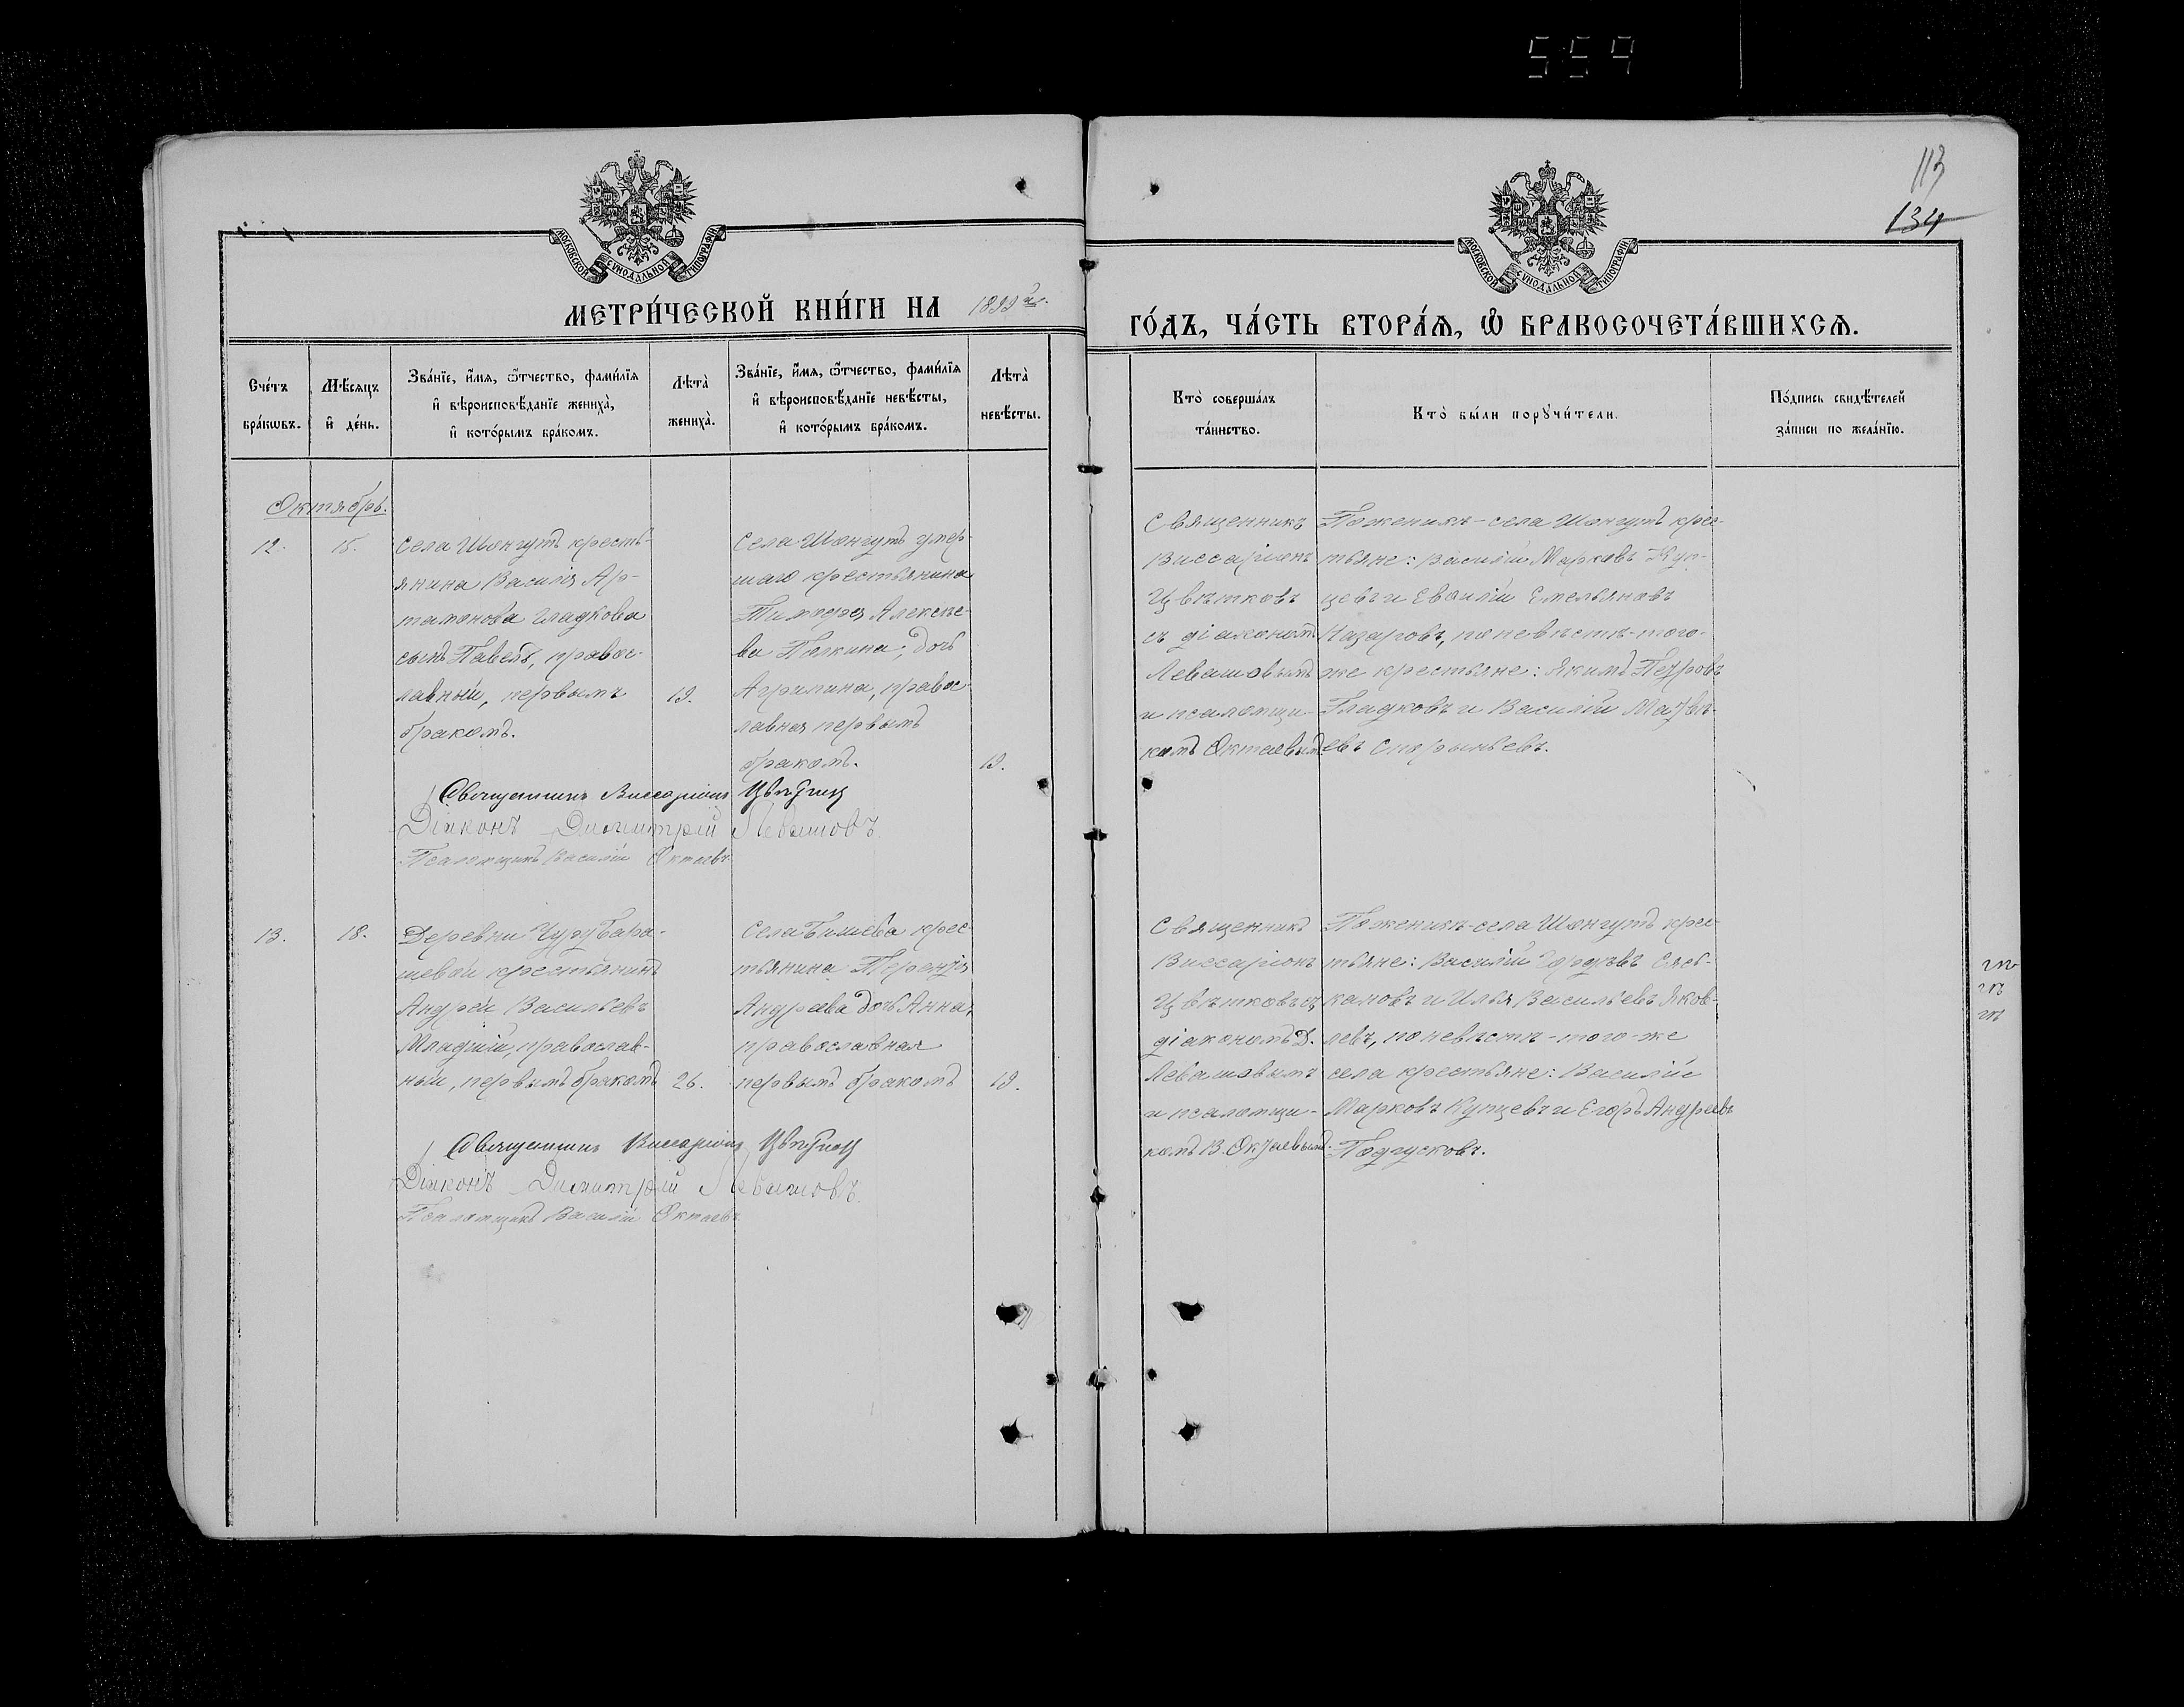 559
113
134
МОСКОВСКОЙ СѴНОДАЛЬНОЙ ТИПОГРАФІИ
МОСКОВСКОЙ СѴНОДАЛЬНОЙ ТИПОГРАФІИ
МЕТРИ́ЧЕСКОЙ КНИ́ГИ НА 1899й
ГО́ДЪ, ЧА́СТЬ ВТОРА́Ѧ, Ѽ БРАКОСОЧЕТА́ВШИХСѦ.
Сче́тъ бра́кѡвъ.
Мѣ́сяцъ и҆ де́нь.
Зва́нїе, и҆́мѧ, ѻ҆́тчество, фами́лїѧ
и҆ вѣроисповѣ́данїе жениха̀,
и҆ кото́рымъ бра́комъ.
Лѣта̀ жениха̀.
Зва́нїе, и҆́мѧ, ѻ҆́тчество, фами́лїѧ
и҆ вѣроисповѣ́данїе невѣ́сты,
и҆ кото́рымъ бра́комъ.
Лѣта̀ невѣ́сты.
Кто̀ соверша́лъ та́инство.
Кто̀ бы́ли порꙋчи́тели.
По́дпись свидѣ́телей за́писи по жела́нїю.
Октябрь.
12.
15.
Села Шонгутъ кресть-
янина Василія Ар-
тамонова Гладкова
сынъ Павелъ, правос-
лавный, первымъ
бракомъ.
19.
Села Шонгутъ умер-
шаго крестьянина
Тимофея Алексѣе-
ва Палкина, дочь
Агрипина, правос-
лавная первымъ
бракомъ.
19.
Священникъ
Виссаріонъ
Цвѣтковъ
съ діакономъ
Левашовымъ
и псаломщи-
комъ Октаевымъ.
По женихѣ - села Шонгутъ крес-
тьяне: Василій Марковъ Куп-
цевъ и Евсилій Емельяновъ
Назаровъ, по невѣстѣ - того-
же крестьяне: Якимъ Петровъ
Гладковъ и Василій Матвѣ-
евъ Спорыньевъ.
Священникъ Виссаріонъ Цвѣтковъ
Діаконъ Димитрій Левашовъ.
Псаломщикъ Василій Октаевъ.
13.
18.
Деревни Чуру Бара-
шевой крестьянинъ
Андрей Васильевъ
Младшій, православ-
ный, первымъ бракомъ
26.
Села Бишева крес-
тьянина Терентія
Андреева дочь Анна,
православная
первымъ бракомъ
19.
Священникъ
Виссаріонъ
Цвѣтковъ съ
діакономъ Д.
Левашовымъ
и псаломщи-
комъ В. Октаевымъ.
По женихѣ - села Шонгутъ крес-
тьяне: Василій
кановъ и Илья Васильевъ Яков-
левъ, по невѣстѣ - того-же
села крестьяне: Василій
Марковъ Купцевъ и Егоръ Андреевъ
Подгусковъ.
Священникъ Виссаріонъ Цвѣтковъ
Діаконъ Димитрій Левашовъ.
Псаломщикъ Василій Октаевъ